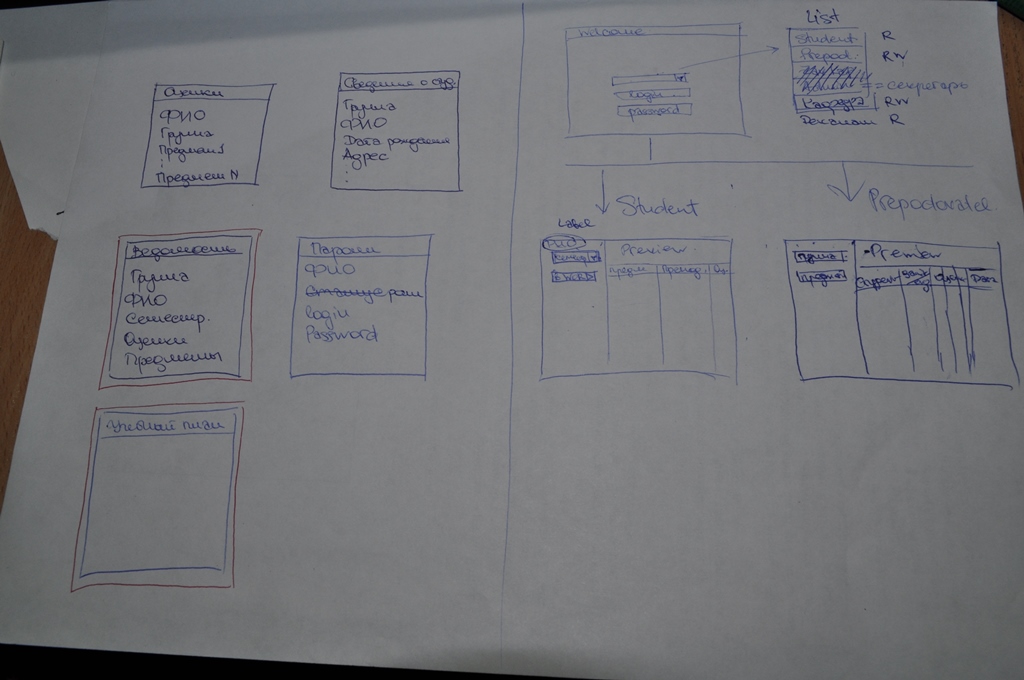 Оценки
ФИО
Группа
Предмет 1
:
Предмет N
Сведения о студ
Группа
ФИО
Дата рождения
Адрес
:
Ведомость
Группа
ФИО
Семестр.
Оценки
Предметы
Пароли
ФИО
Login
Password
Учебный план
Welcome
login
password
List
Student R
Prepod. RW
== секретарь
Кафедра RW
Деканат R
Student
Label
ФИО
Preview
Предм.
Prepodavatel
Группа
Предмет
Preview
Студент
Дата